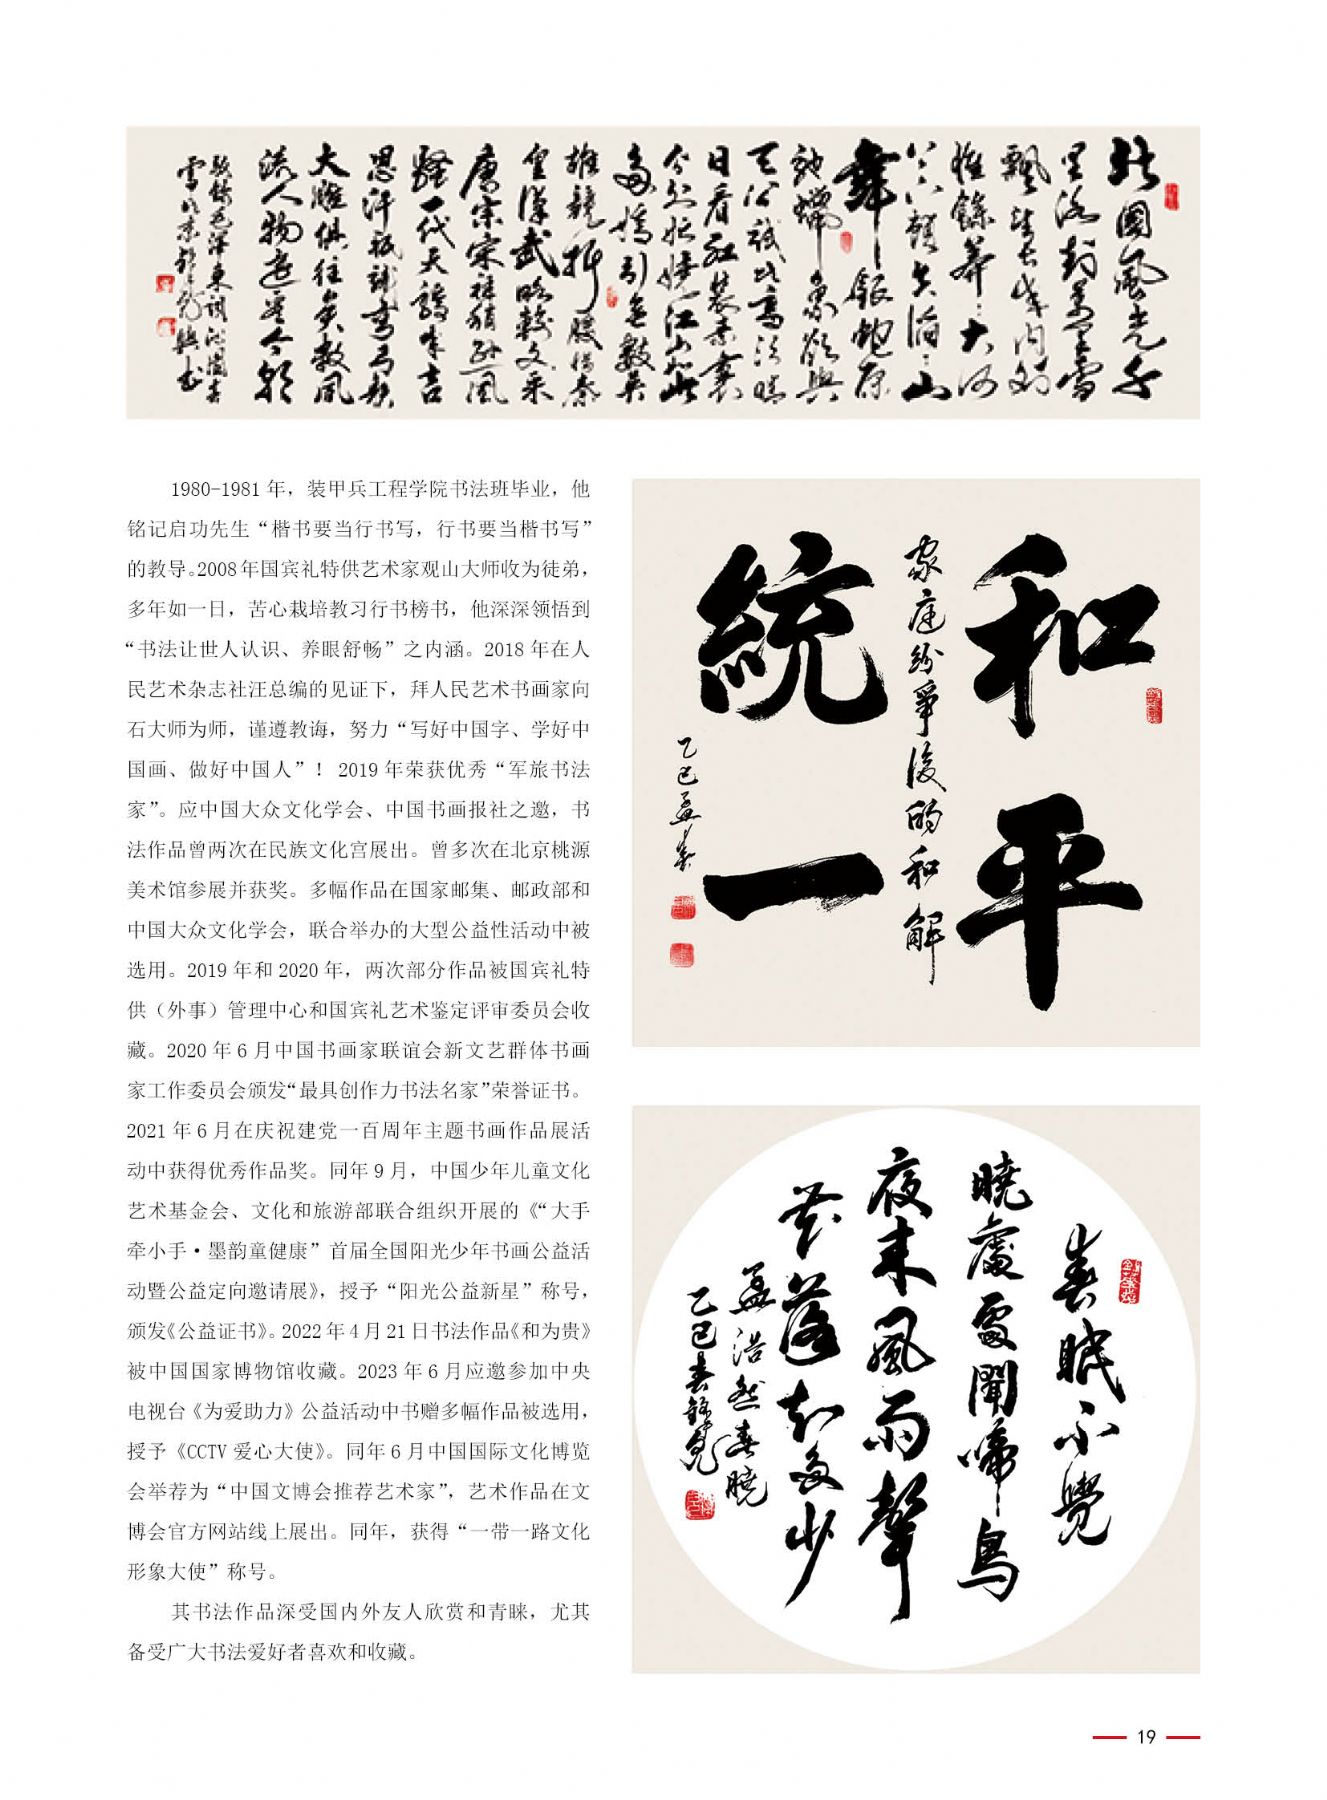 北国风光千
里冰封万里雪
飘望长城内外
惟餘莽〻大河
上下顿失滔〻山
舞银蛇原
驰蠟象欲與
天公试比高须晴
日看红装素裹
分外妖娆江山如此
多娇引无數英
雄競折腰惜秦
皇漢武略輸文采
唐宗宋祖稍逊風
騷一代天骄成吉
思汗祇識弯弓射
大雕俱往矣数風
流人物还看今朝
家庭纷爭後的和解
和平
統一
乙巳孟春
春眠不覺
曉處處聞啼鳥
夜来風雨聲
花落知多少
孟浩然春曉
1980-1981 年，装甲兵工程学院书法班毕业，他
铭记启功先生“楷书要当行书写，行书要当楷书写”
的教导。2008 年国宾礼特供艺术家观山大师收为徒弟，
多年如一日，苦心栽培教习行书榜书，他深深领悟到
“书法让世人认识、养眼舒畅”之内涵。2018 年在人
民艺术杂志社汪总编的见证下，拜人民艺术书画家向
石大师为师，谨遵教诲，努力“写好中国字、学好中
国画、做好中国人”！ 2019 年荣获优秀“军旅书法
家”。应中国大众文化学会、中国书画报社之邀，书
法作品曾两次在民族文化宫展出。曾多次在北京桃源
美术馆参展并获奖。多幅作品在国家邮集、邮政部和
中国大众文化学会，联合举办的大型公益性活动中被
选用。2019 年和 2020 年，两次部分作品被国宾礼特
供（外事）管理中心和国宾礼艺术鉴定评审委员会收
藏。2020 年 6 月中国书画家联谊会新文艺群体书画
家工作委员会颁发“最具创作力书法名家”荣誉证书。
2021 年 6 月在庆祝建党一百周年主题书画作品展活
动中获得优秀作品奖。同年 9 月，中国少年儿童文化
艺术基金会、文化和旅游部联合组织开展的《“大手
牵小手·墨韵童健康”首届全国阳光少年书画公益活
动暨公益定向邀请展》，授予“阳光公益新星”称号，
颁发《公益证书》。2022 年 4 月 21 日书法作品《和为贵》
被中国国家博物馆收藏。2023 年 6 月应邀参加中央
电视台《为爱助力》公益活动中书赠多幅作品被选用，
授予《CCTV 爱心大使》。同年 6 月中国国际文化博览
会举荐为“中国文博会推荐艺术家”，艺术作品在文
博会官方网站线上展出。同年，获得“一带一路文化
形象大使”称号。
其书法作品深受国内外友人欣赏和青睐，尤其
备受广大书法爱好者喜欢和收藏。
19